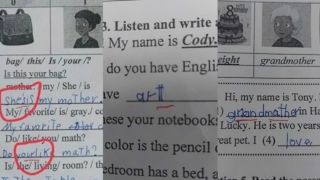 bag/ this/ Is / your /?
Is this your bag?
mother / my / She / is
Shesis my mother
My/ favorite/ is/ gray./ co
My favorite color
Do/ like/ you/ math?
Do youlike math?
Is/ the/ living/ room? / th
3. Listen and write
My name is Cody.
do you have Engli
ave art
ese your notebook
color is the pencil
edroom has a bed, a
eight
grandmother
Hi, my name is Tony.
grandmother in Ha
Lucky. He is two years
eat pet. I (4) love